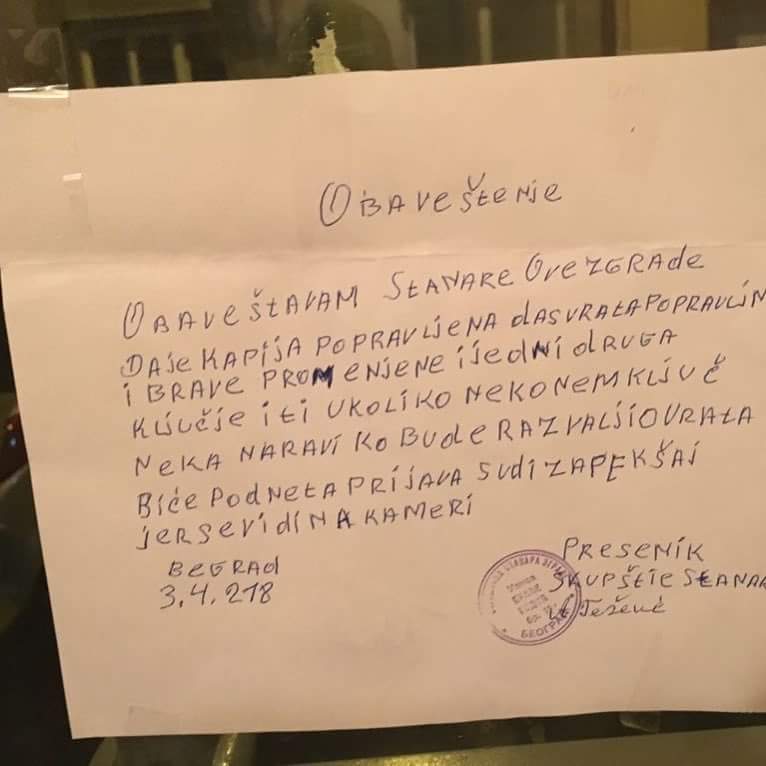 OBAVEŠtENjE
OBAVEŠtAVAM StANARE OVE ZGRADE
DAjE KAPIjA POPRAVLjENA dASVRAtAPOPRAVLjN
I BRAVE PROMENjENE ijEdNi dRUGA
KLjUČjE iti UKOLIKO NEKONEMKLjUČ
NEKA NARAVI KO BUDE RAZVALjIOVRAtA
BIĆE PODNEtA PRIjAVA SUdiZAPEKŠAj
jERSEVIdi NAKAMERI
BEGRAd
3.4.218
PRESENIK
SKUPŠtIE StANAR
БЕОГРАД